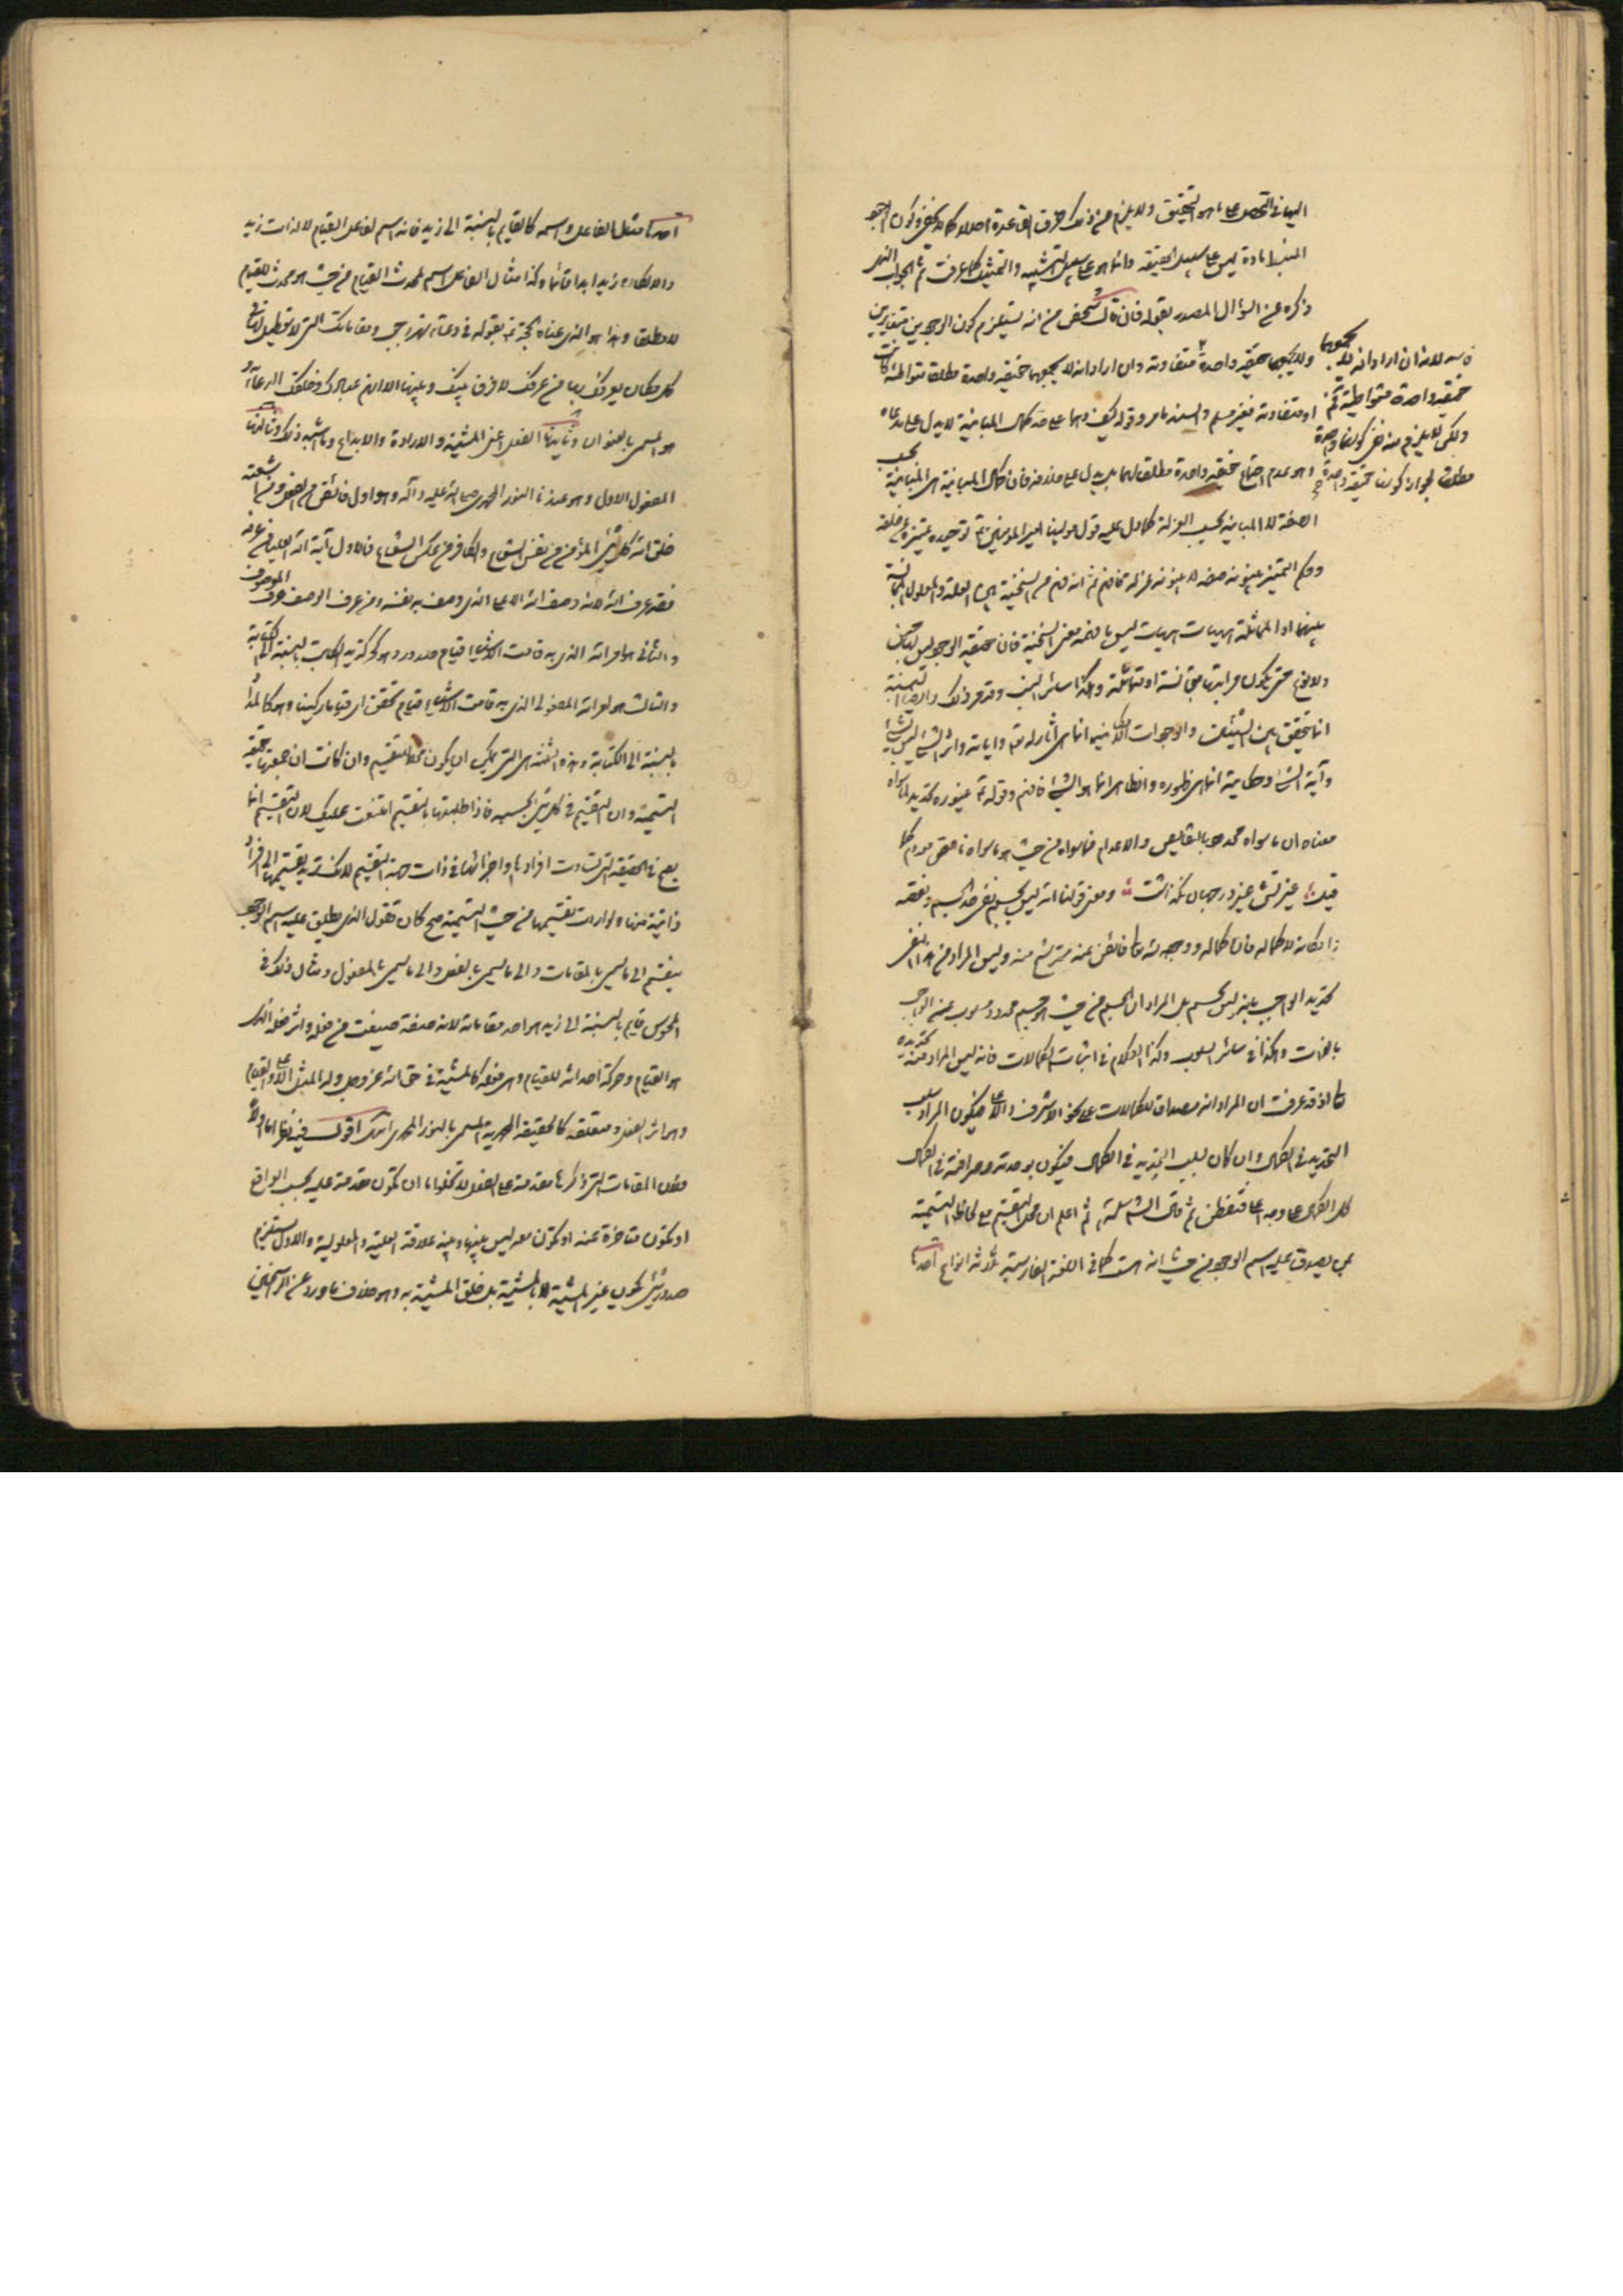 اليها في التحصل على ما هو التحقيق ولا يلزم من ذلك خرق القاعدة اصلا كما لا يخفى وكون الوجود
المنبسط مادة ليس على سبيل الحقيقة وانما هو على سبيل التشبيه والتمثيل كما عرفت ثم الجواب الذى
ذكره عن السؤال المصدر بقوله فان قال شخص من انه يستلزم كون الوجودين متغايرين
فاسد لانه ان اراد انه لا يجمعهما
حقيقة واحدة متواطية فمسلم
ولكن لا يلزم منه نفي كونهما واحدة
مطلقا لجواز كونهما حقيقة واحدة
ولا يجمعهما حقيقة واحدة متفاوتة وان اراد انه لا يجمعهما حقيقة واحدة مطلقا متواطئة كانت
او متفاوتة فغير مسلم والسند ما مر وقوله كيف وهما على حد كمال المباينة لا يدل على مدعاه
وهو عدم اجتماع حقيقة واحدة مطلقا لهما بل يدل على خلافه فان كمال المباينة هي المباينة بحسب
الصفة لا المباينة بحسب العزلة كما دل عليه قول مولينا امير المؤمنين توحيده تمييزه عن خلقه
وحكم التمييز بينونة صفة لا بينونة عزلة فافهم ثم انه فهم من السنخية بين العلة والمعلول المجانسة
بينهما او المماثلة هيهات هيهات ليس ما فهمه معنى السنخية فان حقيقة الوجود ليس بجنس
ولا نوع حتى يكون مراتبها متجانسة او متماثلة وهكذا سائر وقد مر ذلك وايضا السنخية
انما يتحقق بين الشيئين والوجودات الامكانية انما هي آثار له تعالى وآياته واثر الشيء ليس شيئا
وآية الشيء وحكايته انما هي ظهوره والظاهر انما هو الشيء فافهم وقوله غيوره تحديد لما سواه
معناه ان ما سواه محدود بالنقايص والاعدام فما سواه من حيث هو ما سواه ناقص معدوم كما
قيل غيرتش غير در جهان نگذاشت ومعنى قولنا انه ليس بجسم نفى حد الجسم ونقصه
امكانه لا كماله فان كماله ووجوده فائض عنه مترشح منه وليس المراد من هذا النفى
تحديد الواجب بغير ليس بجسم بل المراد ان الجسم من حيث هو جسم محدود مسلوب عنه الواجب
بالذات وهكذا في سائر السلوب وكذا الكلام في اثبات الكمالات فانه ليس المراد منه تحديده
اذ قد عرفت ان المراد انه مصداق للكمالات على نحو الاشرف والاعلى فيكون المراد سلب
التحديد في الكمال وان كان لسلب التحديد في الكمال فيكون بوحدته وصرافته في الكمال
كل الكمال على وجه اعلى فتفطن ثم قال الشيخ ثم اعلم ان محل التقسيم مع لحاظ التسمية
بمن يصدق عليه اسم الوجود من حيث انه هست كما في اللغة الفارسية ثلاثة انواع احدها
احدها مثل الفاعل واسمه كالقايم بالنسبة الى زيد فانه اسم لفاعل القيام لا لذات زيد
والا لكان زيد ابدا قائما وكذا مثال الفاعل اسم لمحدث القيام من حيث هو محدث للقيام
لا مطلقا وهذا هو الذى عناه الحجة بقوله في دعاء شهر رجب ومقاماتك التى لا تعطيل لها في
كل مكان يعرفك بها من عرفك لا فرق بينك وبينها الا انهم عبادك وخلقك الدعاء و
هو المسمى بالعنوان وثانيها الفعل اعنى المشية والارادة والابداع وما اشبه ذلك وثالثها
المفعول الاول وهو عندنا النور المحمدى صلى الله عليه وآله وهو اول فائض من الفعل ومن اشعته
خلق الله كل شيء المؤمن من نفس الشعاع والكافر من عكس الشعاع فالاول آية الله العليا من عرفه
فقد عرف الله لانه وصف الله الاعلى الذى وصف به نفسه ومن عرف الوصف عرف الموصوف
والثانى هو امر الله الذى به قامت الاشياء قيام صدور وهو كحركة يد الكاتب بالنسبة الى الكتابة
والثالث هو امر الله المفعولى الذى به قامت الاشياء قيام تحقق اى قياما ركنيا وهو كالمداد
بالنسبة الى الكتابة وهذه الثلثة هى التى يمكن ان يكون محلا للتقسيم وان كانت ان جمعتها حقيقة
التسمية وان التقسيم في كل شيء بحسبه فاذا طلبتها بالتقسيم امتنعت عليك لان التقسيم انما
يصح في الحقيقة التى تساوت افرادها او اجزائها في ذات جهة التقسيم لانك تريد تقسيمها الى افراد
ذاتية منها ولو اردت تقسيمها من حيث التسمية صح كان تقول الذى يطلق عليه اسم الوجود
ينقسم الى ما يسمى بالمقامات والى ما يسمى بالفعل والى ما يسمى بالمفعول ومثال ذلك في
المحسوس قايم بالنسبة الى زيد هو احد مقاماته لانه صفة صيغت من فعله واثر فعله الذى
هو القيام وحركة احداثه للقيام وهى فعله كالمشية في حق الله عز وجل وله المثل الاعلى والقيام
وهو اثر الفعل ومتعلقه كالحقيقة المحمدية المسمى بالنور المحمدى انتهى اقول فيه نظر اما اولا
فلان المقامات التى ذكرها مقدمة على الفعل لا تخلوا اما ان تكون متقدمة عليه بحسب الواقع
او يكون متأخرة عنه او تكون معه ليس بينها وبينه علاقة العلية والمعلولية والاول يستلزم
صدور شيء يكون غير المشية لا بالمشية بل خلق المشية به وهو خلاف ما ورد عن الراسخين